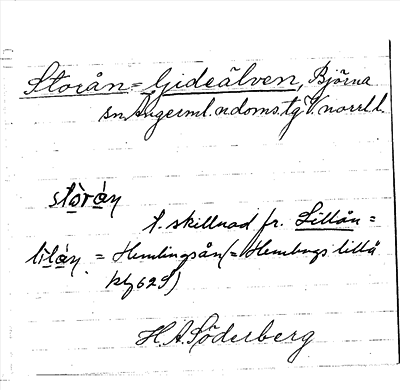 Storån = Gideälven, Björna
sn Ångerml. n. doms. tg V. norrl.
stòrá̱n
t. skillnad fr. Lillån =
lìlá̱n = Hemlingsån (= Hembygs lillå
bl 629)
H. A. Söderberg